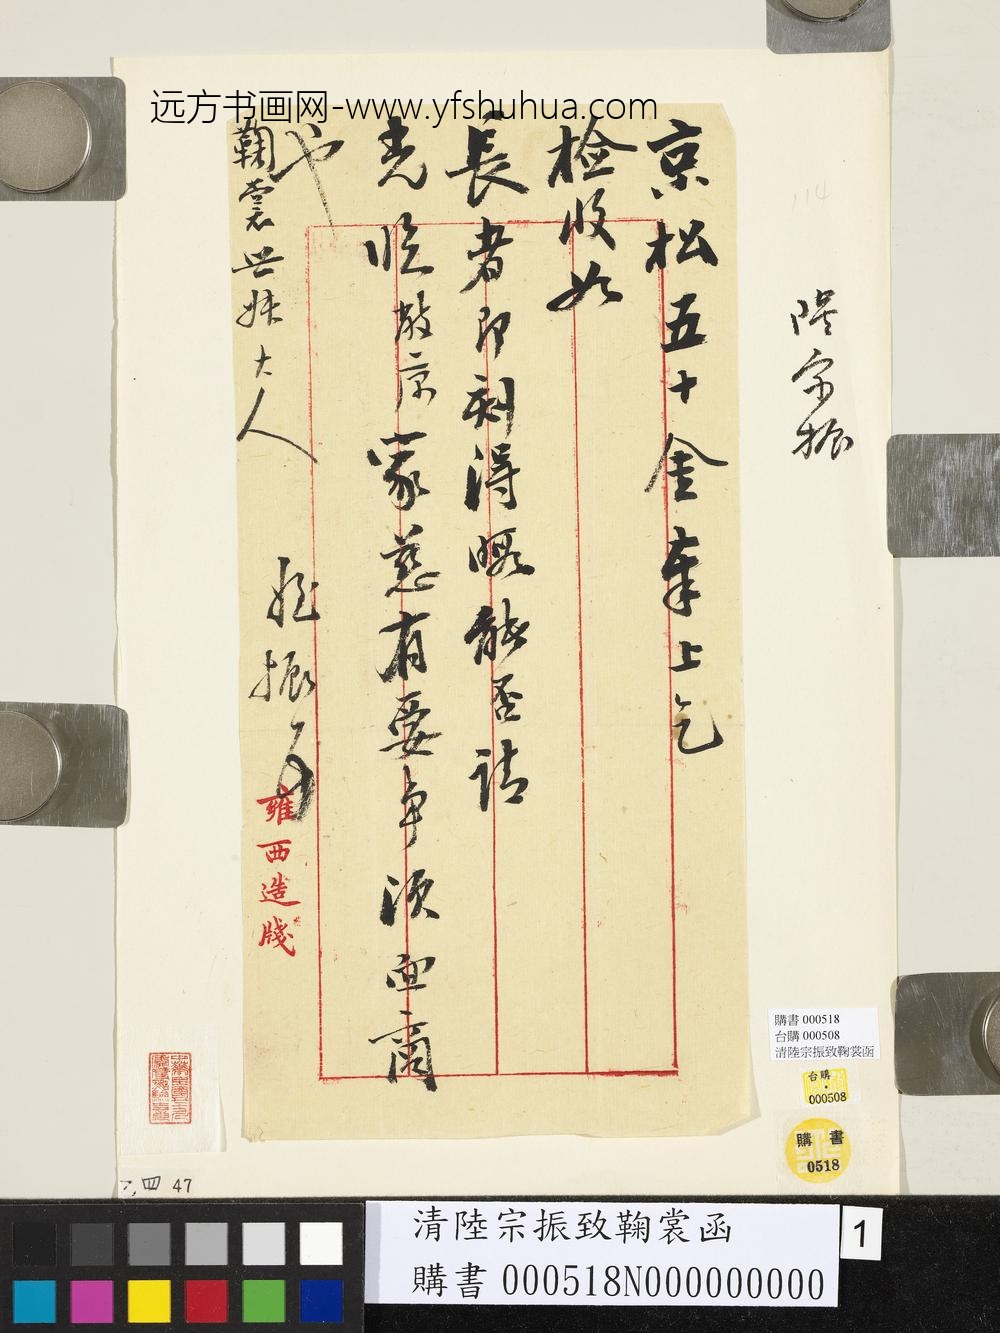 远方书画网-www.yfshuhua.com
京松五十金奉上乞
檢收如
長者即刻得暇能否請
光臨敝京家慈有要事須面商
也
鞠裳世姝大人
姪振
雍西造牋
陸宗振
114
購書 000518
台購 000508
清陸宗振致鞠裳函
台購
000508
購書
0518
四 47
清陸宗振致鞠裳函
購書 000518N000000000
1